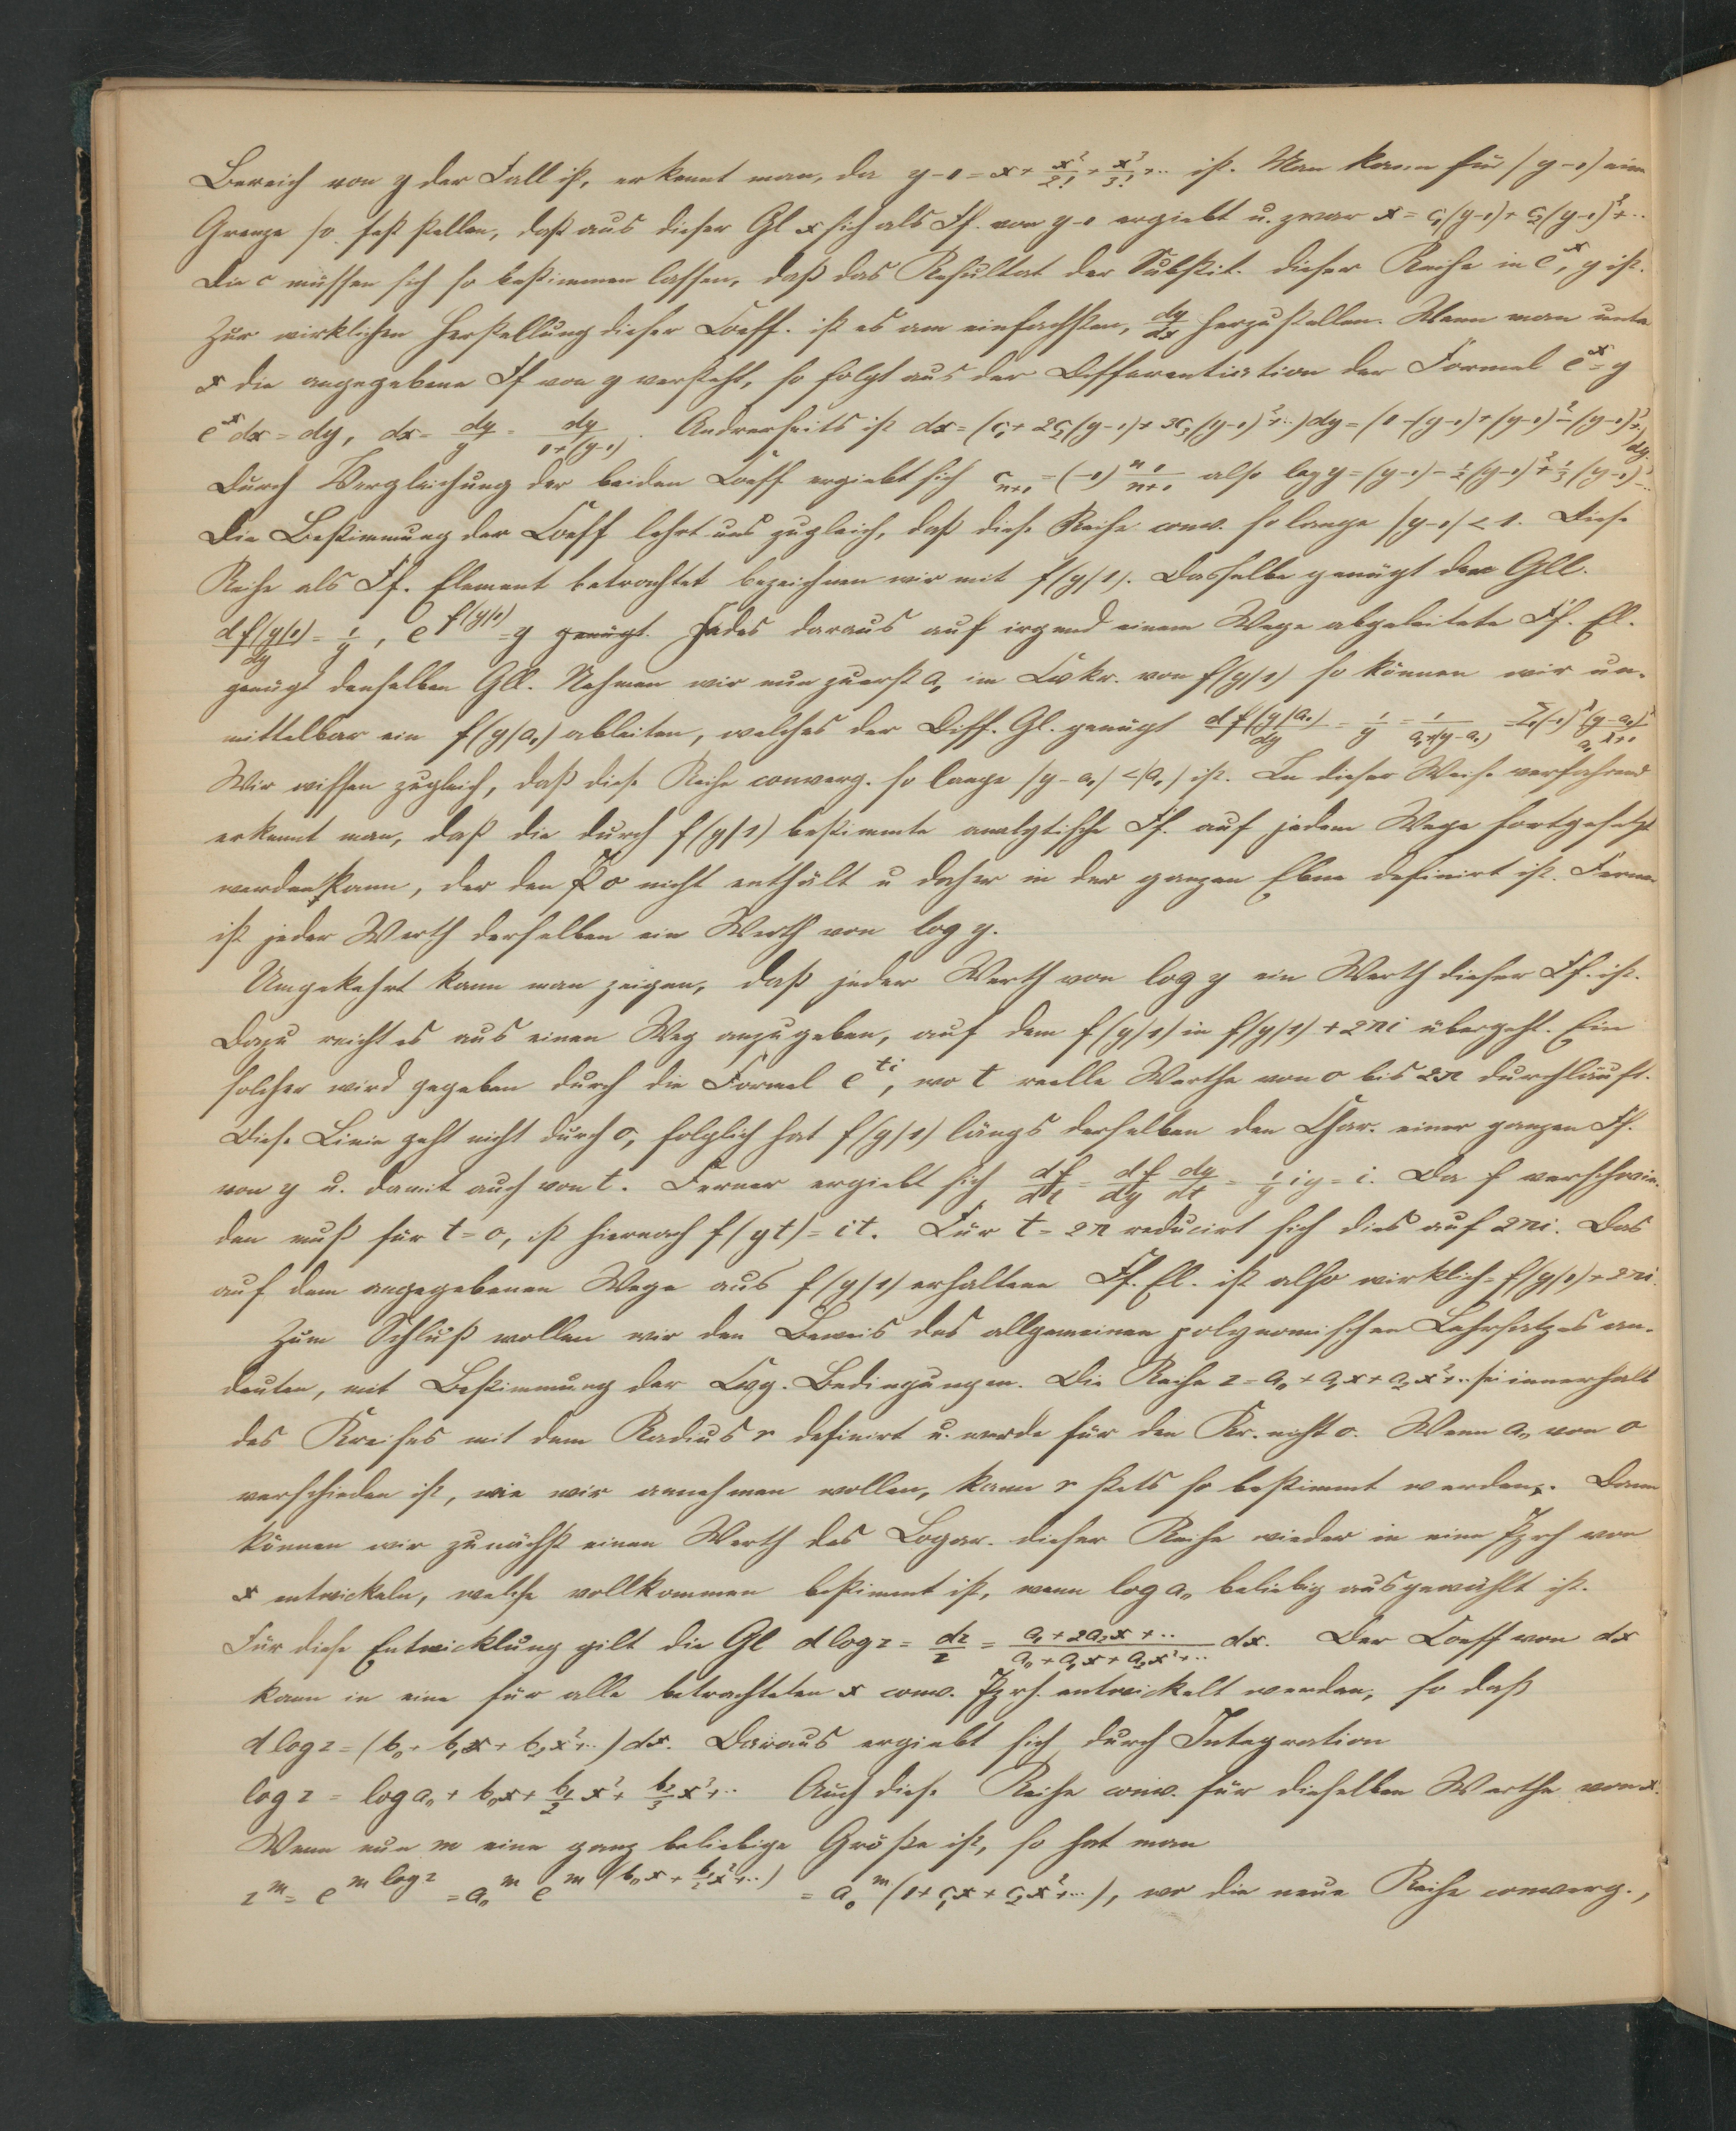 Bereich von y der Fall ist, erkennt man, da y-1 = x + x²/2! + x³/3! + .. ist. Man kann für |y-1| eine
Grenze so feststellen, daß aus dieser Gl x sich als Ff. von y-1 ergiebt u. zwar x = c₁(y-1) + c₂(y-1)² + ..
Die c müssen sich so bestimmen lassen, daß das Resultat der Substit. dieser Reihe in eˣ, y ist.
Zur wirklichen Herstellung dieser Coeff. ist es am einfachsten, dy/dx herzustellen. Wenn man unter
x die angegebene Ff von y versteht, so folgt aus der Differentiation der Formel eˣ = y
eˣdx = dy, dx = dy/y = dy/(1+(y-1)). Andrerseits ist dx = (c₁ + 2c₂(y-1) + 3c₃(y-1)² + ..)dy = (1-(y-1)+(y-1)²-(y-1)³+..)dy.
Durch Vergleichung der beiden Coeff ergiebt sich cₙ₊₁ = (-1)ⁿ 1/(n+1) also log y = (y-1) - ½(y-1)² + ⅓(y-1)³ - ..
Die Bestimmung der Coeff lehrt uns zugleich, daß diese Reihe conv. so lange |y-1| < 1. Diese
Reihe als Ff. Element betrachtet bezeichnen wir mit f(y|1). Dasselbe genügt den Gll.
df(y|1)/dy = 1/y, e^f(y|1) = y genügt. Jedes daraus auf irgend einem Wege abgeleitete Ff. El.
genügt denselben Gll. Nehmen wir nun zuerst a₁ im Cvkr. von f(y|1) so können wir un-
mittelbar ein f(y|a₁) ableiten, welches der Diff. Gl. genügt df(y|a₁)/dy = 1/y = 1/(a₁+(y-a₁)) = Σ(-1)^λ (y-a₁)^λ/a₁^(λ+1)
Wir wissen zugleich, daß diese Reihe converg. so lange |y-a₁| < |a₁| ist. In dieser Weise verfahrend
erkennt man, daß die durch f(y|1) bestimmte analytische Ff. auf jedem Wege fortgesetzt
werden kann, der den P 0 nicht enthält u daher in der ganzen Ebne definirt ist. Ferner
ist jeder Werth derselben ein Werth von log y.
Umgekehrt kann man zeigen, daß jeder Werth von log y ein Werth dieser Ff. ist.
Dazu reicht es aus einen Weg anzugeben, auf dem f(y|1) in f(y|1) + 2πi übergeht. Ein
solcher wird gegeben durch die Formel e^ti, wo t reelle Werthe von 0 bis 2π durchläuft.
Diese Linie geht nicht durch 0, folglich hat f(y|1) längs derselben den Char. einer ganzen Ff.
von y u. damit auch von t. Ferner ergiebt sich df/dt = df/dy dy/dt = 1/y iy = i. Da f verschwin-
den muß für t=0, ist hiernach f(yt) = it. Für t=2π reducirt sich dies auf 2πi. Das
auf dem angegebenen Wege aus f(y|1) erhaltene Ff. El. ist also wirklich = f(y|1) + 2πi.
Zum Schluß wollen wir den Beweis des allgemeinen polynomischen Lehrsatzes an-
deuten, mit Bestimmung der Cvg. Bedingungen. Die Reihe z = a₀ + a₁x + a₂x² + .. sei innerhalb
des Kreises mit dem Radius r definirt u. werde für den Kr. nicht 0. Wenn a₀ von 0
verschieden ist, wie wir annehmen wollen, kann r stets so bestimmt werden. Dann
können wir zunächst einen Werth des Logar. dieser Reihe wieder in eine Pzrh von
x entwickeln, welche vollkommen bestimmt ist, wenn log a₀ beliebig ausgewählt ist.
Für diese Entwicklung gilt die Gl d log z = dz/z = (a₁ + 2a₂x + ..)/(a₀ + a₁x + a₂x² + ..) dx. Der Coeff von dx
kann in eine für alle betrachteten x conv. Pzrh. entwickelt werden, so daß
d log z = (b₀ + b₁x + b₂x² + ..)dx. Daraus ergiebt sich durch Integration
log z = log a₀ + b₀x + b₁/2 x² + b₂/3 x³ + .. Auch diese Reihe conv. für dieselben Werthe von x.
Wenn nun m eine ganz beliebige Größe ist, so hat man
z^m = e^(m log z) = a₀^m e^(m(b₀x + b₁/2 x² + ..)) = a₀^m (1 + c₁x + c₂x² + ..), wo die neue Reihe converg.,